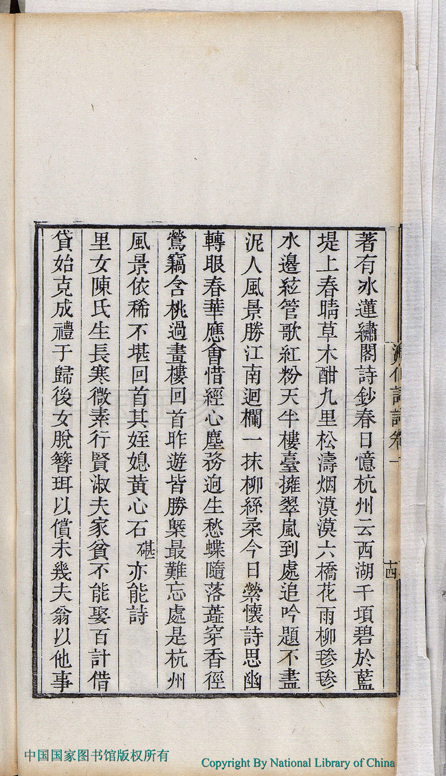 著有冰蓮繡閣詩鈔春日憶杭州云西湖千頃碧於藍
堤上春晴草木酣九里松濤烟漠漠六橋花雨柳毿毿
水邊絃管歌紅粉天半樓臺擁翠嵐到處追吟題不盡
泥人風景勝江南迴欄一抹柳絲柔今日縈懷詩思幽
轉眼春華應會惜經心塵務逈生愁蝶隨落蘂穿香徑
鶯竊含桃過畫樓回首昨遊皆勝槩最難忘處是杭州
風景依稀不堪回首其姪媳黃心石碪亦能詩
里女陳氏生長寒微素行賢淑夫家貧不能娶百計借
貸始克成禮于歸後女脫簪珥以償未幾夫翁以他事
十四
中国国家图书馆版权所有
Copyright By National Library of China